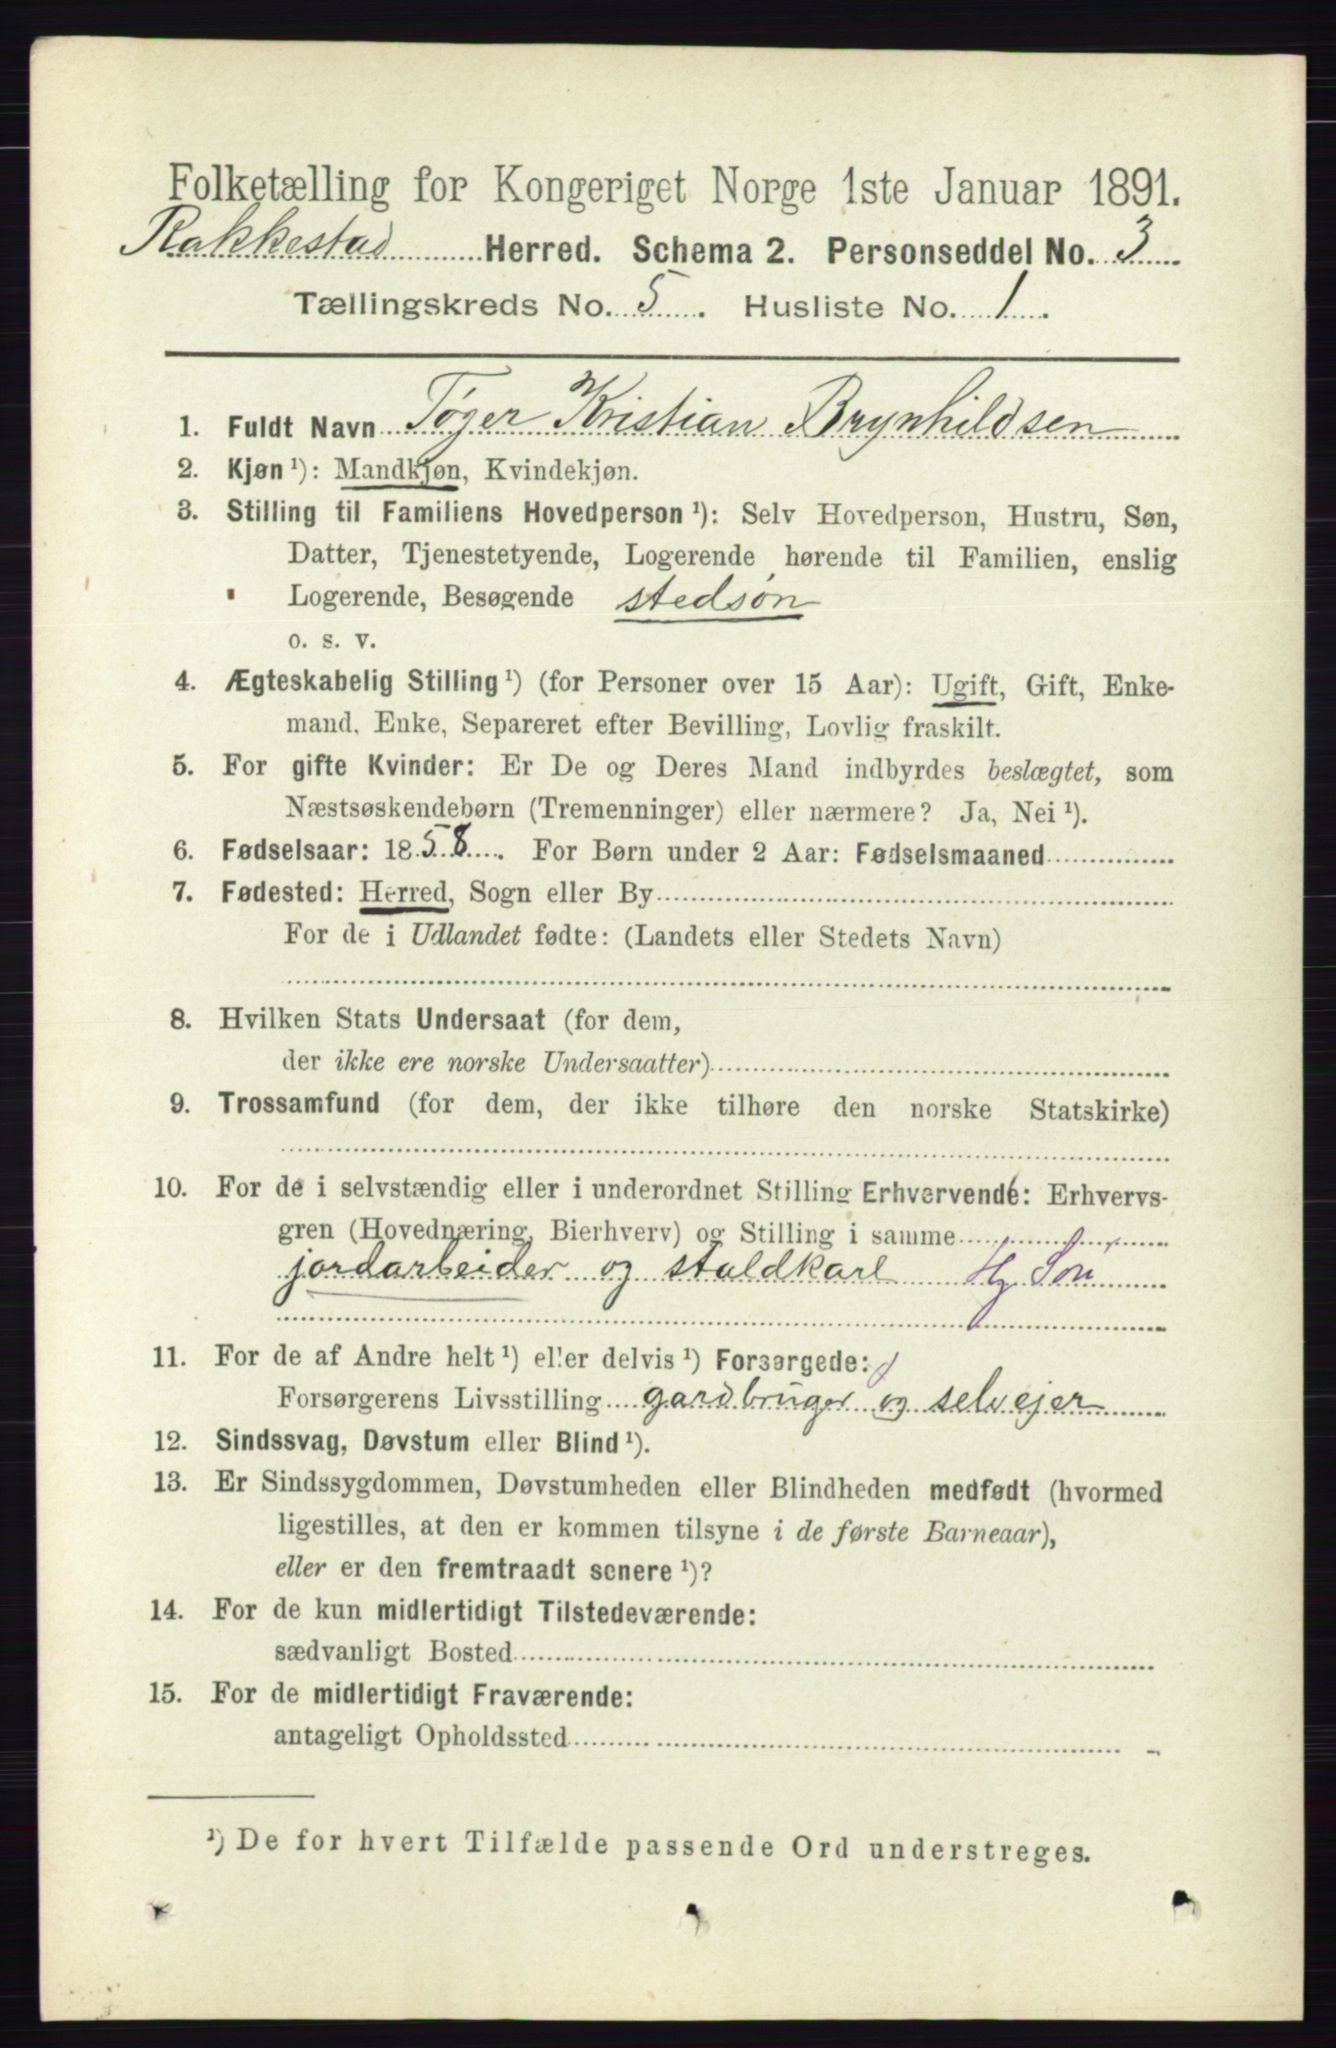 Folketælling for Kongeriget Norge 1ste Januar 1891.
Rakkestad Herred. Schema 2. Personseddel No. 3
Tællingskreds No. 5. Husliste No. 1.
1. Fuldt Navn Tøger Kristian Brynhildsen
2. Kjøn¹): Mandkjøn, Kvindekjøn.
3. Stilling til Familiens Hovedperson¹): Selv Hovedperson, Hustru, Søn,
Datter, Tjenestetyende, Logerende hørende til Familien, enslig
Logerende, Besøgende stedsøn
o. s. v.
4. Ægteskabelig Stilling¹) (for Personer over 15 Aar): Ugift, Gift, Enke-
mand, Enke, Separeret efter Bevilling, Lovlig fraskilt.
5. For gifte Kvinder: Er De og Deres Mand indbyrdes beslægtet, som
Næstsøskendebørn (Tremenninger) eller nærmere? Ja, Nei¹).
6. Fødselsaar: 1858. For Børn under 2 Aar: Fødselsmaaned
7. Fødested: Herred, Sogn eller By
For de i Udlandet fødte: (Landets eller Stedets Navn)
8. Hvilken Stats Undersaat (for dem,
der ikke ere norske Undersaatter)
9. Trossamfund (for dem, der ikke tilhøre den norske Statskirke)
10. For de i selvstændig eller i underordnet Stilling Erhvervende: Erhvervs-
gren (Hovednæring, Bierhverv) og Stilling i samme
jordarbeider og staldkarl Hj Søn
11. For de af Andre helt¹) eller delvis¹) Forsørgede:
Forsørgerens Livsstilling gardbruger og selvejer
12. Sindssvag, Døvstum eller Blind¹).
13. Er Sindssygdommen, Døvstumheden eller Blindheden medfødt (hvormed
ligestilles, at den er kommen tilsyne i de første Barneaar),
eller er den fremtraadt senere¹)?
14. For de kun midlertidigt Tilstedeværende:
sædvanligt Bosted
15. For de midlertidigt Fraværende:
antageligt Opholdssted
¹) De for hvert Tilfælde passende Ord understreges.